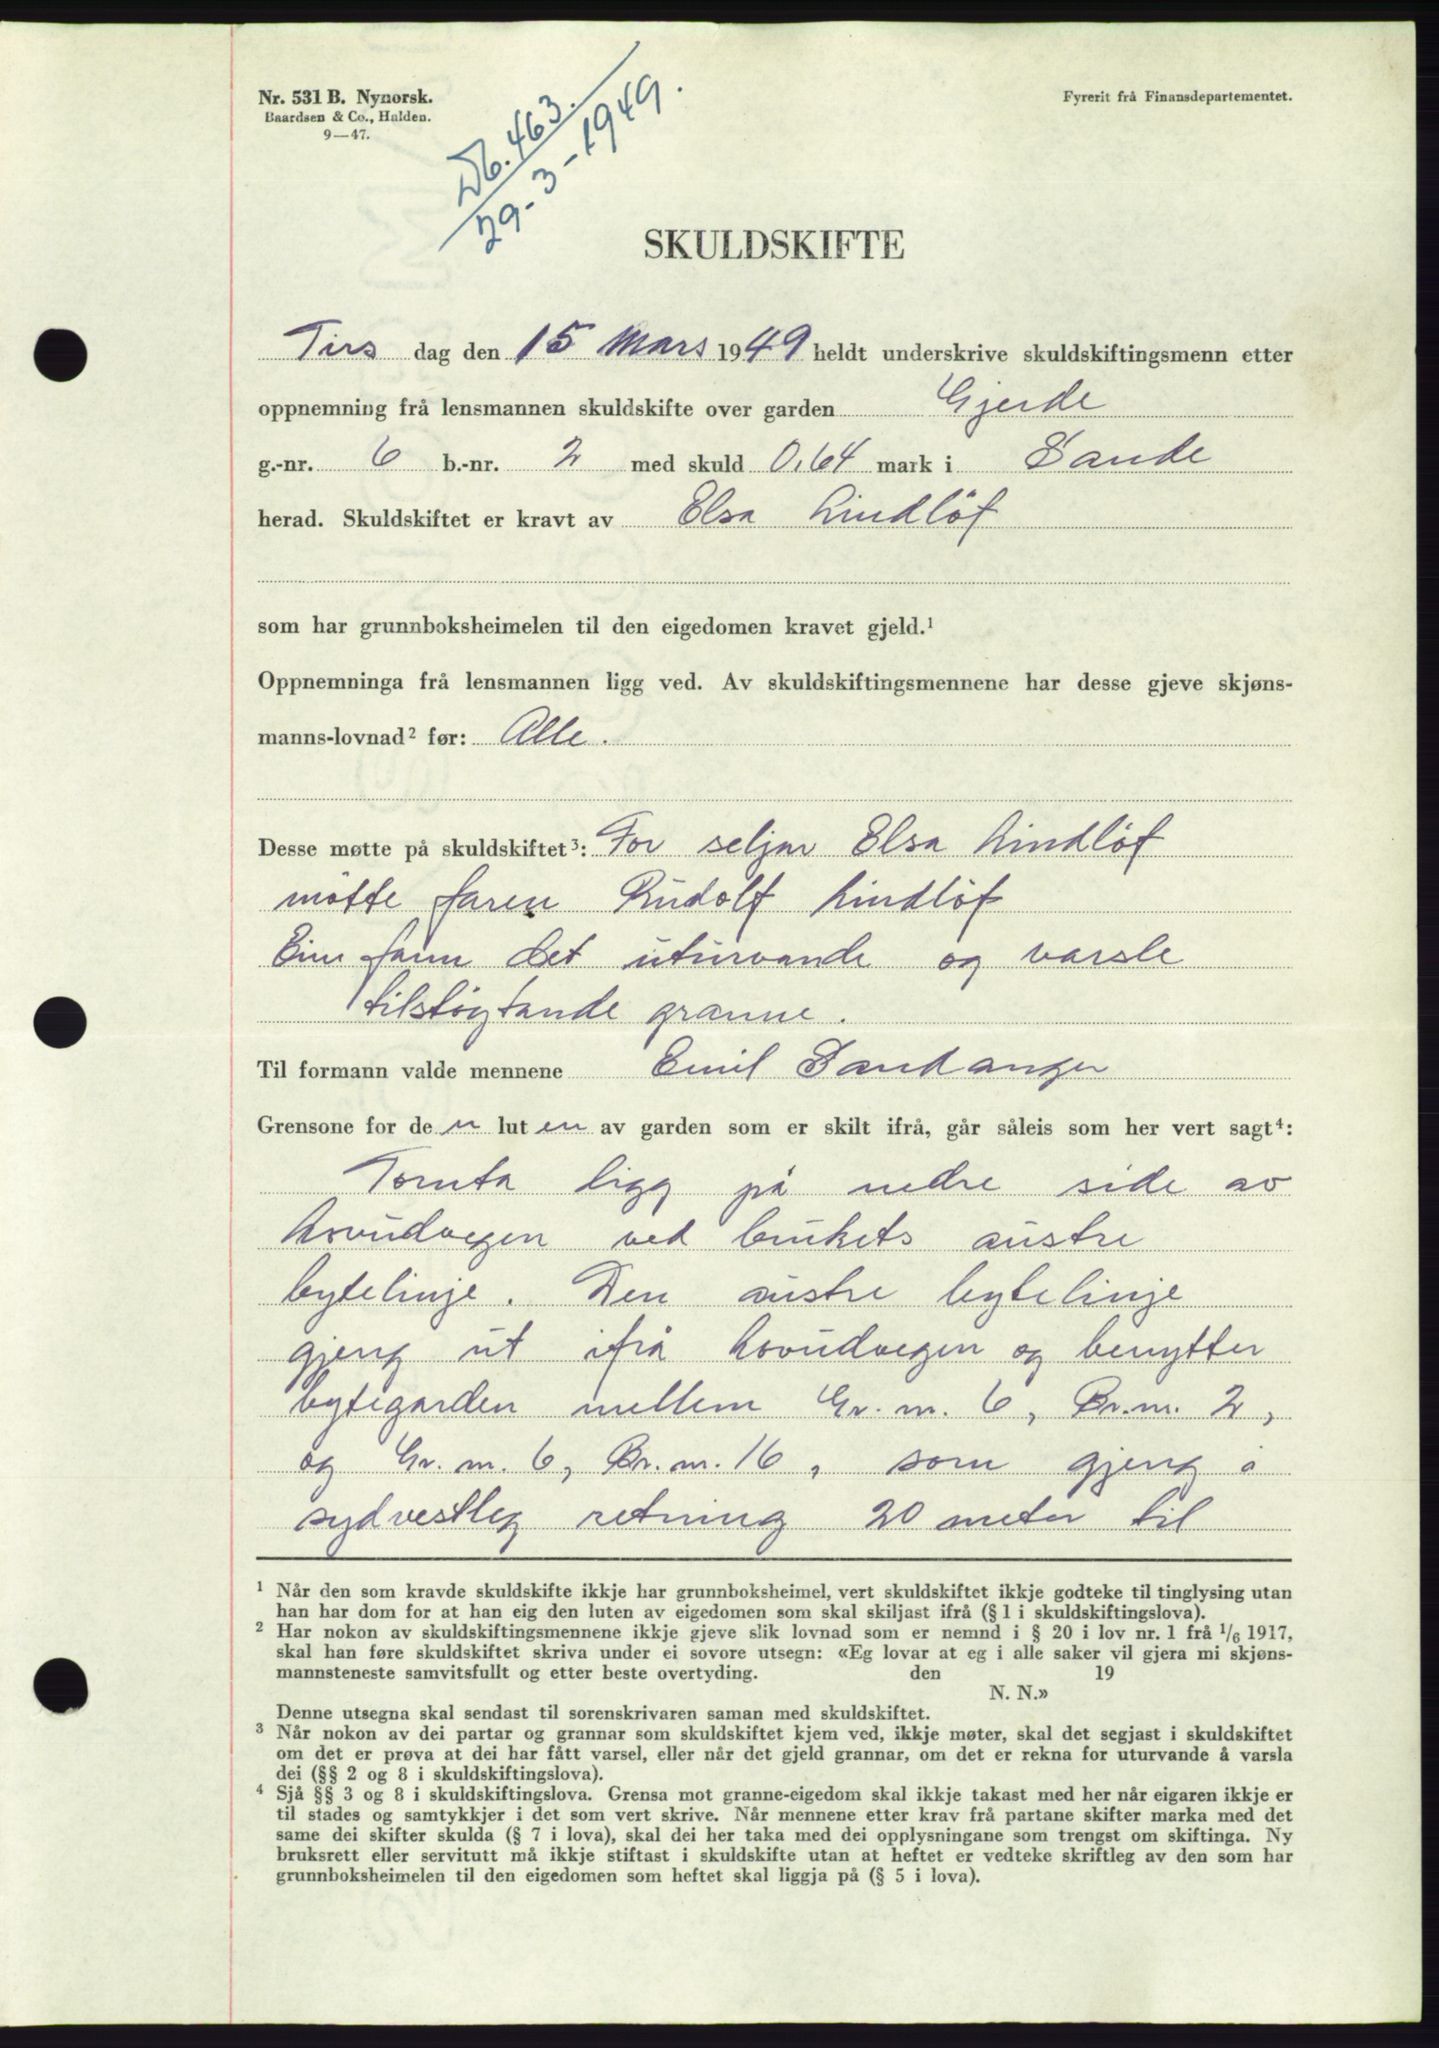 Nr. 531 B. Nynorsk.
Baardsen & Co., Halden.
9—47.
Fyrerit frå Finansdepartementet.
Db. 463.
29-3-1949.
SKULDSKIFTE
Tirs dag den 15 Mars 1949 heldt underskrive skuldskiftingsmenn etter
oppnemning frå lensmannen skuldskifte over garden Gjerde
g.-nr. 6 b.-nr. 2 med skuld 0,64 mark i Sande
herad. Skuldskiftet er kravt av Elsa Lindlöf
som har grunnboksheimelen til den eigedomen kravet gjeld.¹
Oppnemninga frå lensmannen ligg ved. Av skuldskiftingsmennene har desse gjeve skjøns-
manns-lovnad² før: Alle.
Desse møtte på skuldskiftet³: For seljar Elsa Lindlöf
møtte faren Rudolf Lindlöf
Ein fann det uturvande og varsle
tilstøytande granne.
Til formann valde mennene Emil Sandanger
Grensone for de n lut en av garden som er skilt ifrå, går såleis som her vert sagt⁴:
Tomta ligg på nedre side av
hovudvegen ved brukets austre
bytelinje. Den austre bytelinje
gjeng ut ifrå hovudvegen og benytter
bytegarden mellem Gr. nr. 6, Br. nr. 2,
og Gr. nr. 6, Br. nr. 16, som gjeng i
sydvestleg retning 20 meter til
¹ Når den som kravde skuldskifte ikkje har grunnboksheimel, vert skuldskiftet ikkje godteke til tinglysing utan
han har dom for at han eig den luten av eigedomen som skal skiljast ifrå (§ 1 i skuldskiftingslova).
² Har nokon av skuldskiftingsmennene ikkje gjeve slik lovnad som er nemnd i § 20 i lov nr. 1 frå 1/6 1917,
skal han føre skuldskiftet skriva under ei sovore utsegn: «Eg lovar at eg i alle saker vil gjera mi skjøns-
mannsteneste samvitsfullt og etter beste overtyding. den 19
N. N.»
Denne utsegna skal sendast til sorenskrivaren saman med skuldskiftet.
³ Når nokon av dei partar og grannar som skuldskiftet kjem ved, ikkje møter, skal det segjast i skuldskiftet
om det er prøva at dei har fått varsel, eller når det gjeld grannar, om det er rekna for uturvande å varsla
dei (§§ 2 og 8 i skuldskiftingslova).
⁴ Sjå §§ 3 og 8 i skuldskiftingslova. Grensa mot granne-eigedom skal ikkje takast med her når eigaren ikkje er
til stades og samtykkjer i det som vert skrive. Når mennene etter krav frå partane skifter marka med det
same dei skifter skulda (§ 7 i lova), skal dei her taka med dei opplysningane som trengst om skiftinga. Ny
bruksrett eller servitutt må ikkje stiftast i skuldskifte utan at heftet er vedteke skriftleg av den som har
grunnboksheimelen til den eigedomen som heftet skal liggja på (§ 5 i lova).